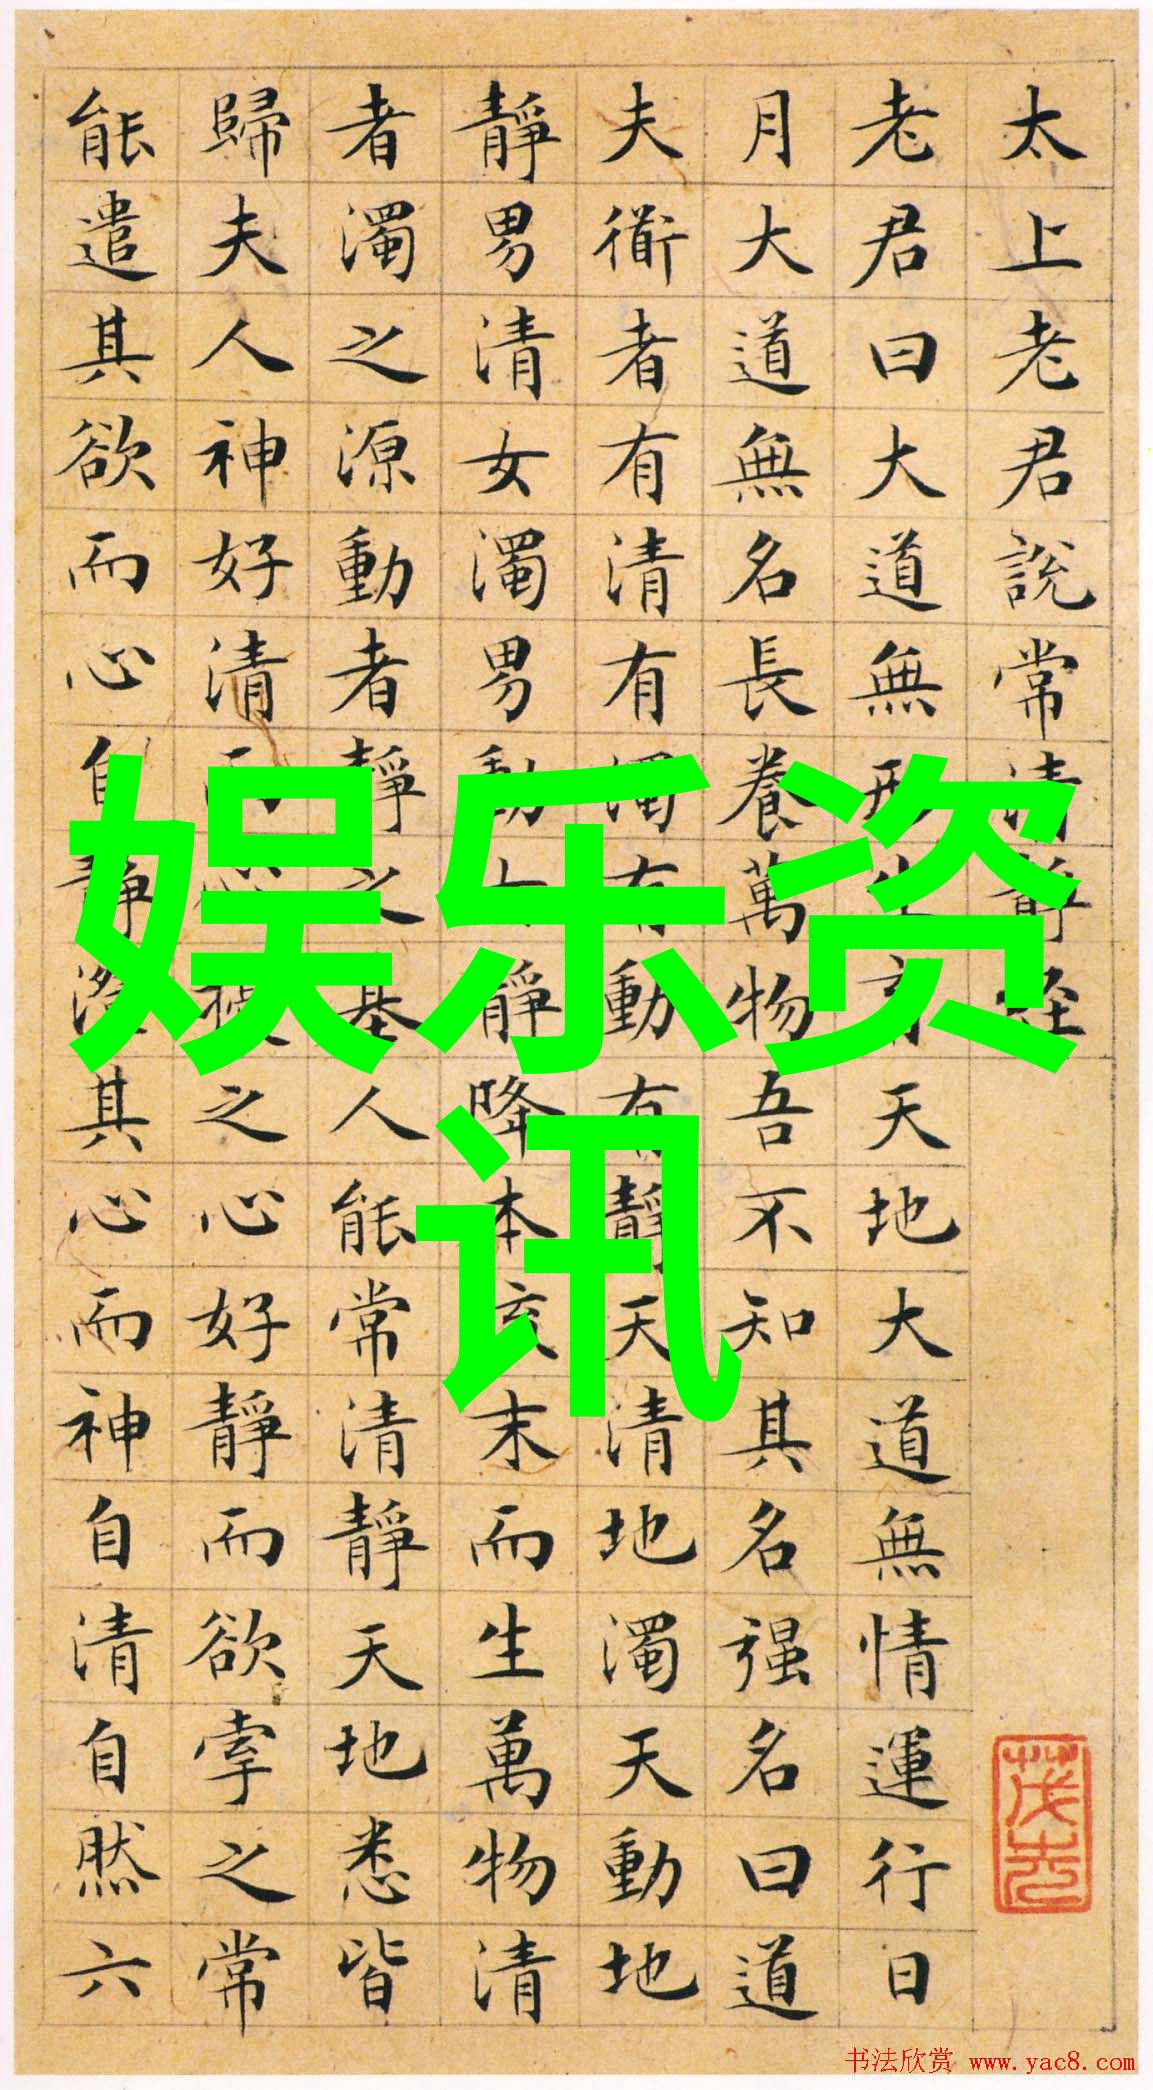 太上老君說常清靜經
老君曰大道無形生育天地大道無情運行日
月大道無名長養萬物吾不知其名强名曰道
夫衜者有清有濁有動有靜天清地濁天動地
靜男清女濁男動女靜降本流末而生萬物清
者濁之源動者靜之基人能常清靜天地悉皆
歸夫人神好清而心擾之心好靜而欲牽之常
能遣其欲而心自靜澄其心而神自清自然六
娱乐资
讯
书法欣赏 www.yac8.com